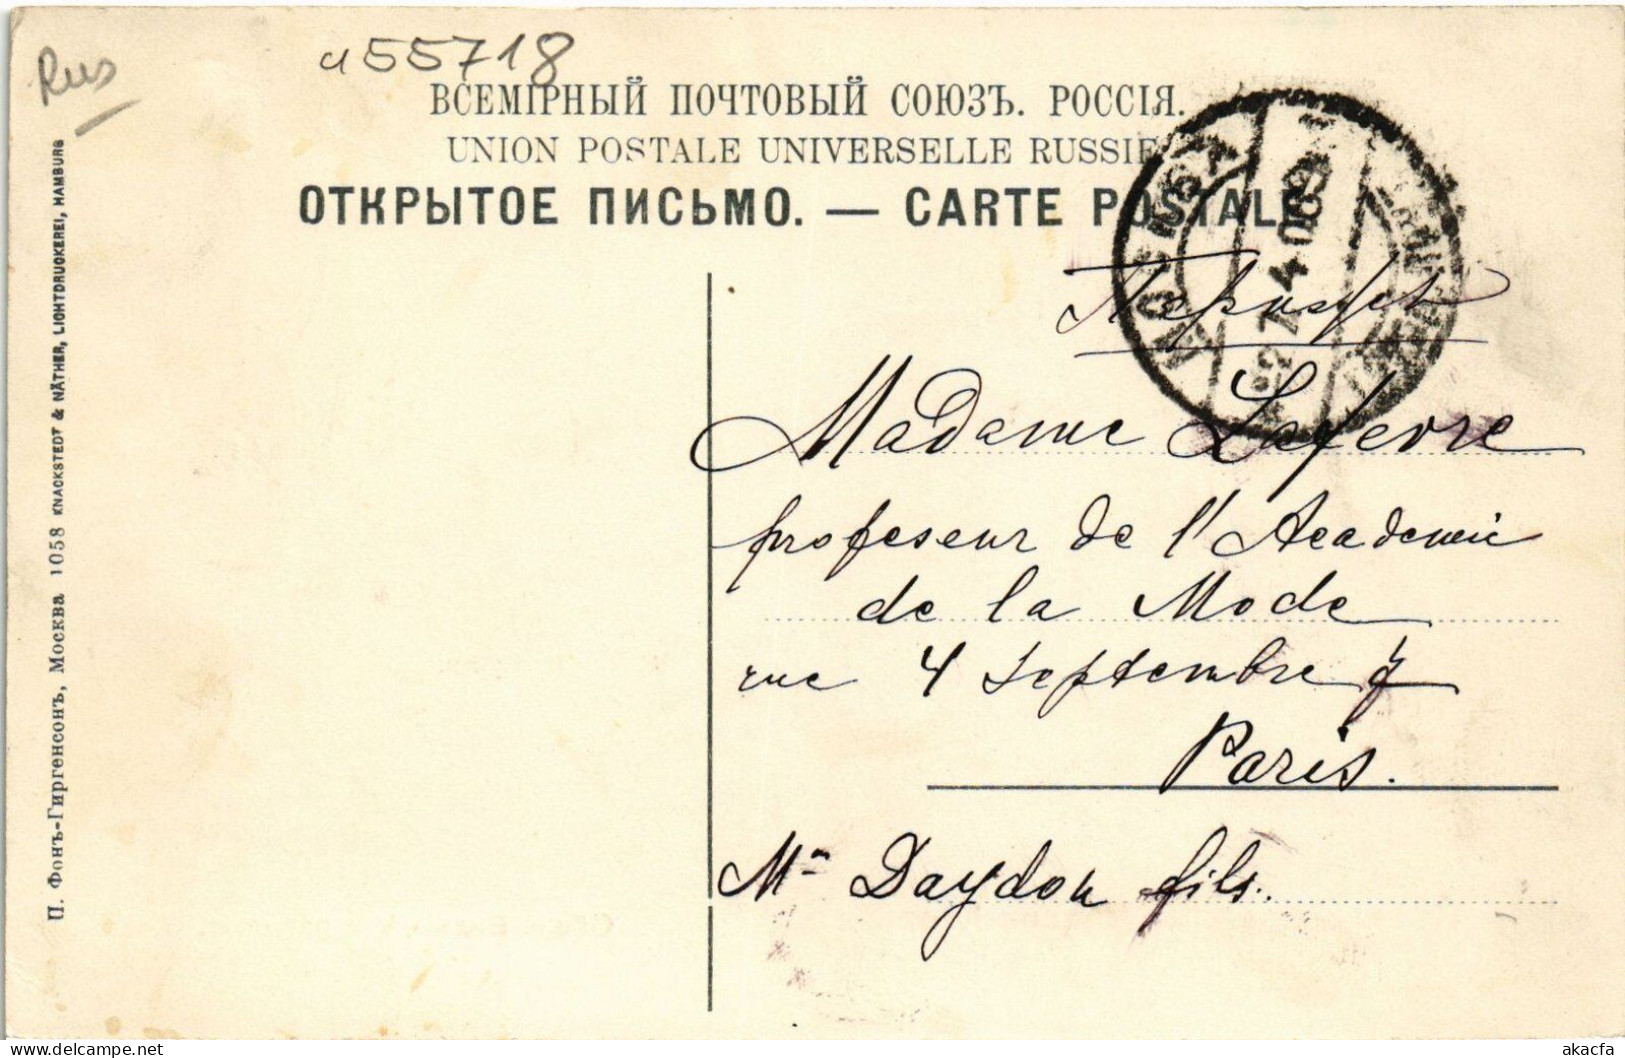 Rus
a55718
ВСЕМІРНЫЙ ПОЧТОВЫЙ СОЮЗЪ. РОССІЯ.
UNION POSTALE UNIVERSELLE RUSSIE
ОТКРЫТОЕ ПИСЬМО. — CARTE POSTALE
МОСКВА
Парижъ
Madame Lafevre
profeseur de l'Academie
de la Mode
rue 4 Septembre 7
Paris.
Mr Daydon fils.
П. Фонъ-Гиргенсонъ, Москва 1058 KNACKSTEDT & NÄTHER, LICHTDRUCKEREI, HAMBURG
akacfa